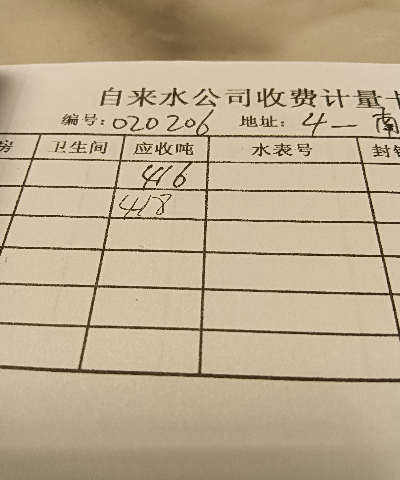 自来水公司收费计量卡
编号:020206 地址:4一南
房 卫生间 应收吨 水表号 封
416
418